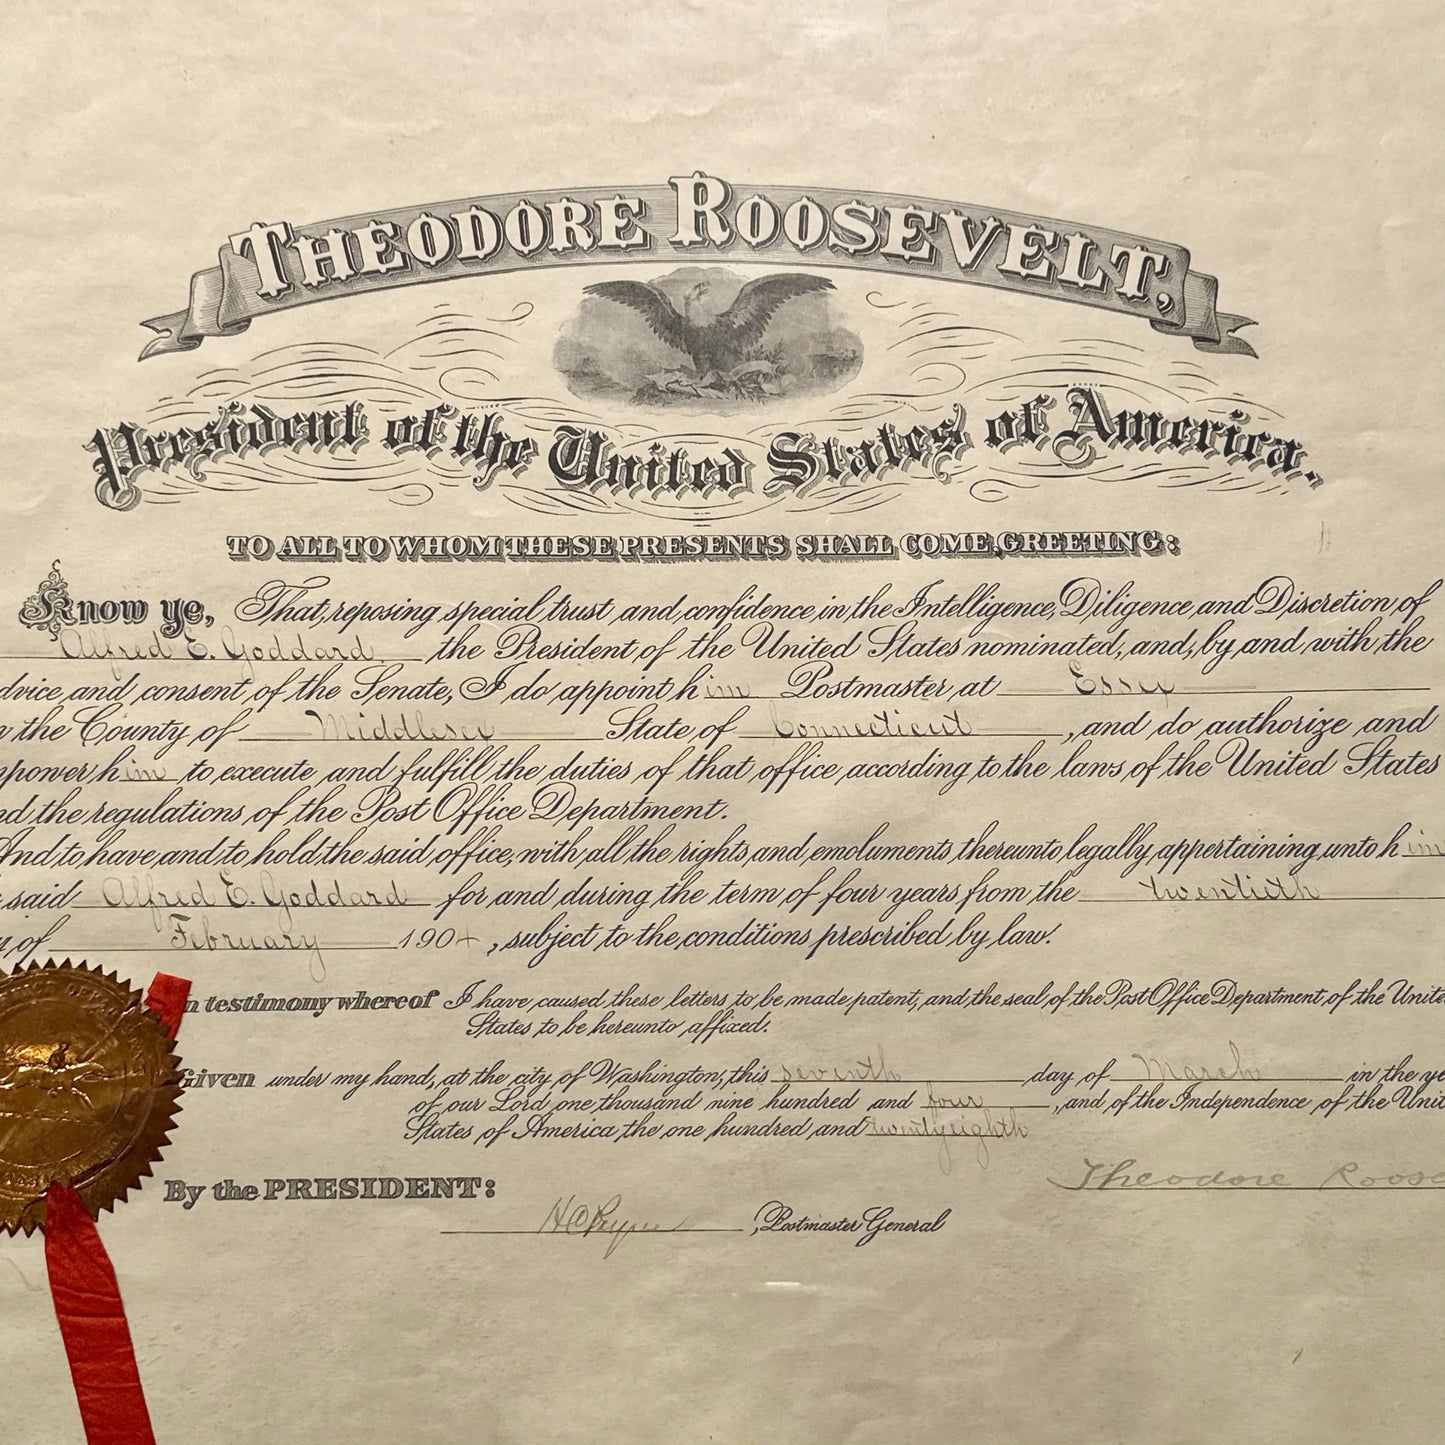 THEODORE ROOSEVELT,
President of the United States of America.
TO ALL TO WHOM THESE PRESENTS SHALL COME, GREETING:
Know ye, That, reposing special trust and confidence in the Intelligence, Diligence, and Discretion of
Alfred E. Goddard, the President of the United States nominated, and, by and with the
dvice and consent of the Senate, I do appoint him Postmaster at Essex
n the County of Middlesex State of Connecticut, and do authorize and
mpower him to execute and fulfill the duties of that office according to the laws of the United States
nd the regulations of the Post Office Department.
And to have and to hold the said office, with all the rights and emoluments thereunto legally appertaining unto him
said Alfred E. Goddard for and during the term of four years from the twentieth
y of February 1904, subject to the conditions prescribed by law.
In testimony whereof I have caused these letters to be made patent, and the seal of the Post Office Department of the Unite
States to be hereunto affixed.
Given under my hand, at the city of Washington, this seventh day of March in the ye
of our Lord one thousand nine hundred and four, and of the Independence of the Unit
States of America the one hundred and twentyeighth
Theodore Roose
By the PRESIDENT:
H C Payne, Postmaster General